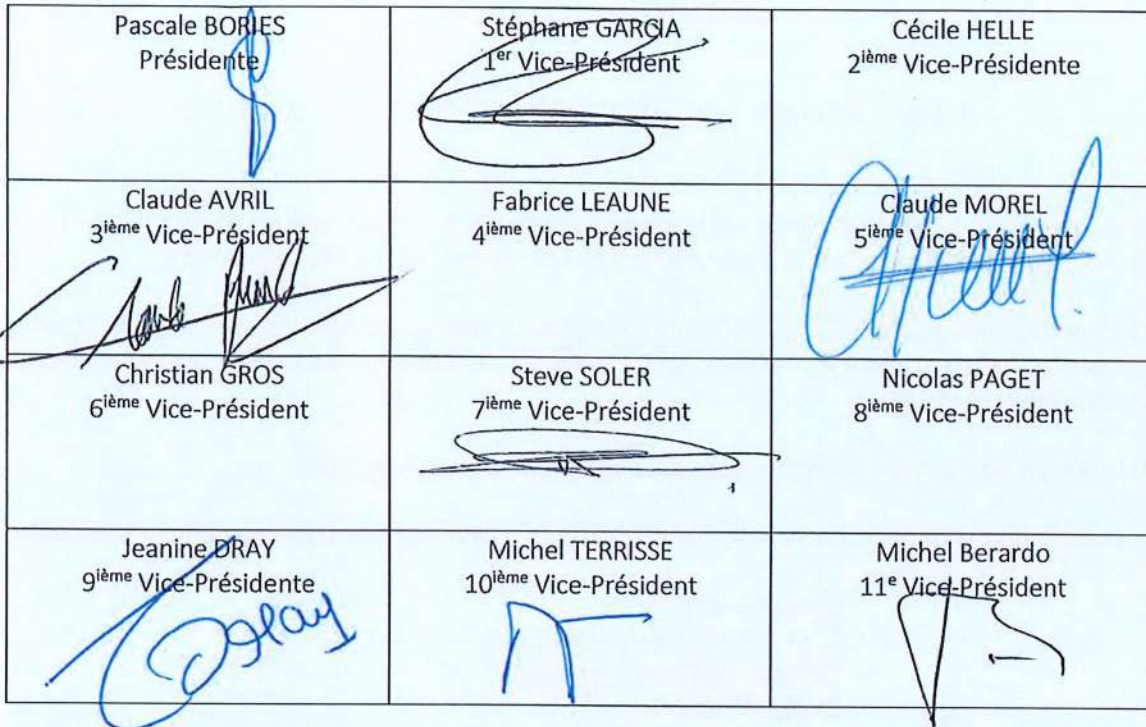 Pascale BORIES
Présidente
Stéphane GARCIA
1er Vice-Président
Cécile HELLE
2ième Vice-Présidente
Claude AVRIL
3ième Vice-Président
Fabrice LEAUNE
4ième Vice-Président
Claude MOREL
5ième Vice-Président
Christian GROS
6ième Vice-Président
Steve SOLER
7ième Vice-Président
Nicolas PAGET
8ième Vice-Président
Jeanine DRAY
9ième Vice-Présidente
Michel TERRISSE
10ième Vice-Président
Michel Berardo
11e Vice-Président